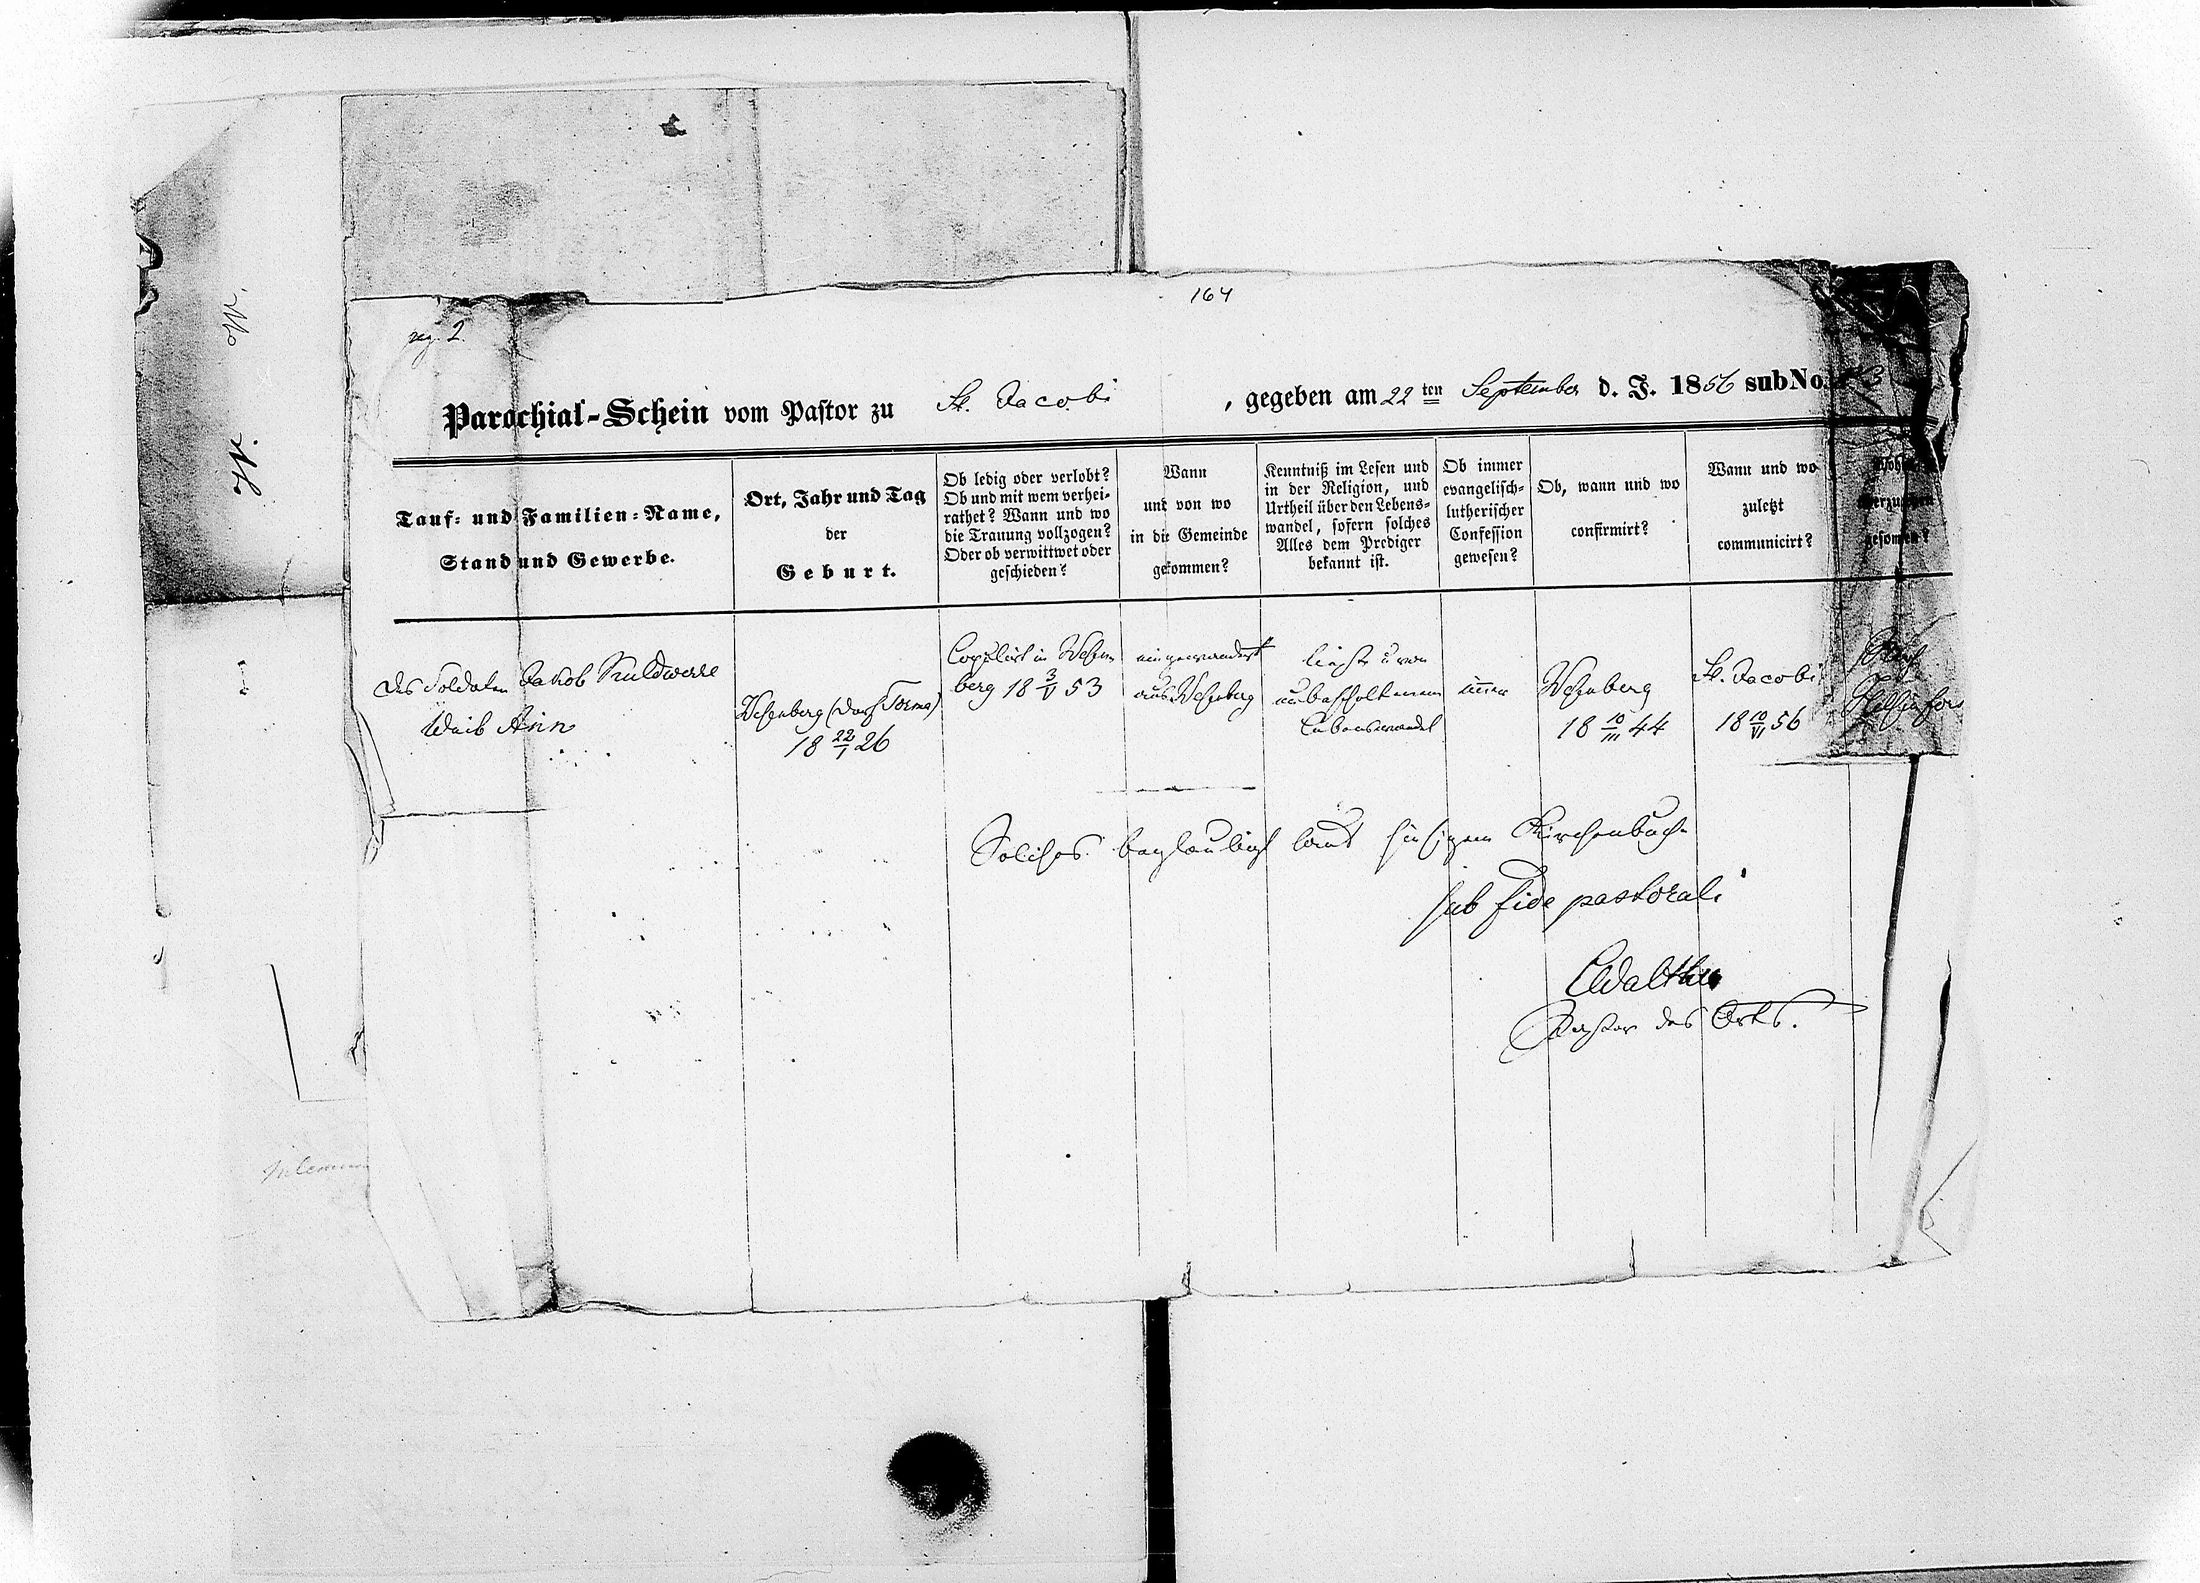 164
reg. 2.
Parochial-Schein vom Pastor zu St. Jacobi, gegeben am 22 ten September d. J. 1856 sub No
Tauf- und Familien-Name,
Stand und Gewerbe.
Ort, Jahr und Tag
der
Geburt.
Ob ledig oder verlobt?
Ob und mit wem verhei-
rathet? Wann und wo
die Trauung vollzogen?
Oder ob verwittwet oder
geschieden?
Wann
und von wo
in die Gemeinde
gekommen?
Kenntniß im Lesen und
in der Religion, und
Urtheil über den Lebens-
wandel, sofern solches
Alles dem Prediger
bekannt ist.
Ob immer
evangelisch-
lutherischer
Confession
gewesen?
Ob, wann und wo
confirmirt?
Wann und wo
zuletzt
communicirt?
des Soldaten Jakob Kuldwerre
Weib Ann
Wesenberg (Dorf Torma)
18 22/I 26
Copulirt in Wesen-
berg 18 3/V 53
eingewandert
aus Wesenberg
liest u von
unbescholtenem
Lebenswandel
immer
Wesenberg
18 10/III 44
St. Jacobi
18 10/VI 56
nach
Helsingfors
Solches beglaubigt laut hiesigem Kirchenbuch
sub fide pastorali
Pastor des Orts.